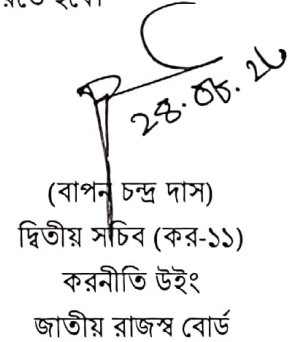 (বাপন চন্দ্র দাস)
দ্বিতীয় সচিব (কর-১১)
করনীতি উইং
জাতীয় রাজস্ব বোর্ড